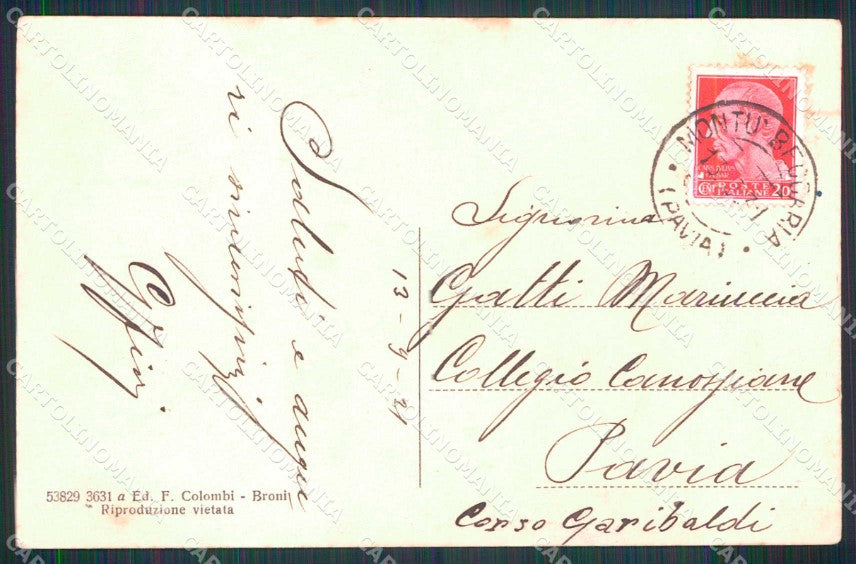 Saluti e augu
ri
13-9-21
Signorina
Gatti Mariuccia
Collegio Canossiane
Pavia
Corso Garibaldi
MONTU' BECCARIA
(PAVIA)
POSTE
ITALIANE
CENT 20
53829 3631 a Ed. F. Colombi - Broni
Riproduzione vietata
CARTOLINOMANIA